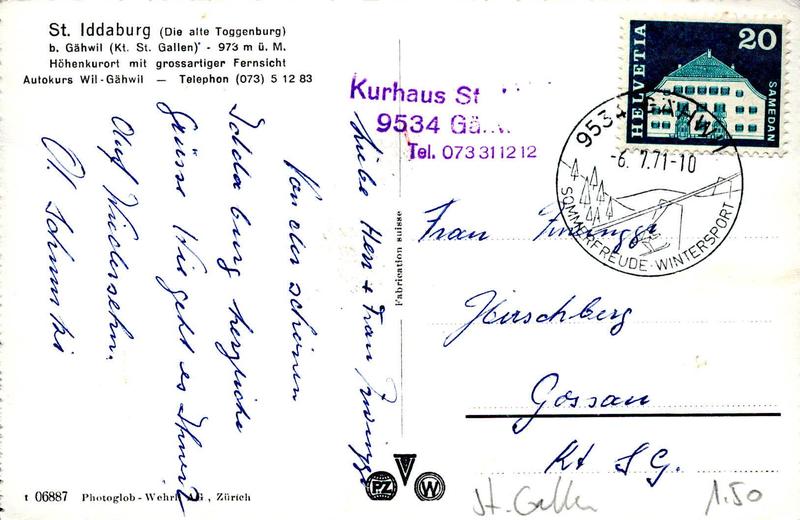 St. Iddaburg (Die alte Toggenburg)
b. Gähwil (Kt. St. Gallen) - 973 m ü. M.
Höhenkurort mit grossartiger Fernsicht
Autokurs Wil-Gähwil — Telephon (073) 5 12 83
Kurhaus St
9534 Gä
Tel. 073 31 12 12
HELVETIA
20
SAMEDAN
9534 GÄHWIL
-6. 7.71-10
SOMMERFREUDE · WINTERSPORT
Liebe Herr + Frau Zwinggi
Von der schönen
Iddaburg herzliche
Grüsse Wie geht es Ihnen
Auf Wiedersehn.
Fabrication suisse
Frau Zwinggi
Hirschberg
Gossau
Kt SG.
t 06887 Photoglob-Wehrli AG, Zürich
PZ V W
St. Gallen
1.50